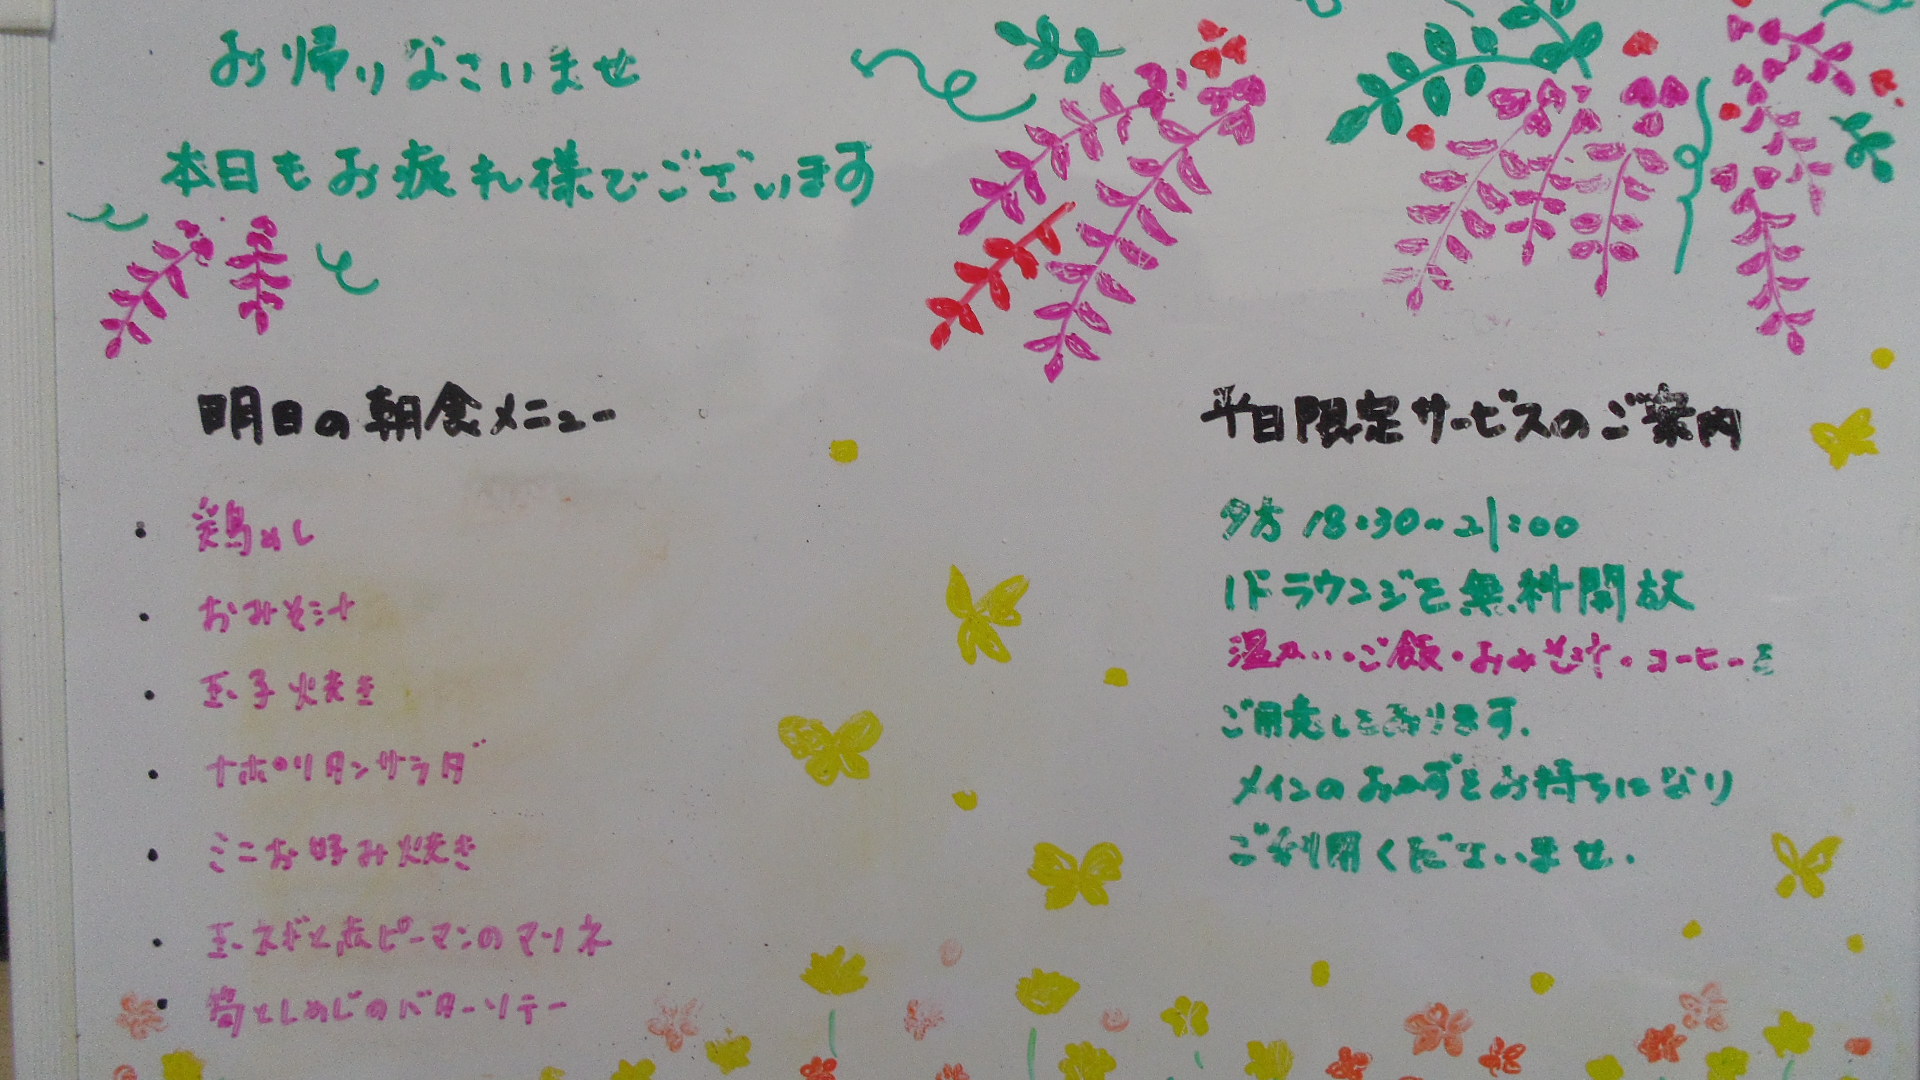 お帰りなさいませ
本日もお疲れ様でございます
明日の朝食メニュー
・鶏めし
・おみそ汁
・玉子焼き
・ナポリタンサラダ
・ミニお好み焼き
・玉ネギと赤ピーマンのマリネ
・筍としめじのバターソテー
平日限定サービスのご案内
夕方18:30~21:00
1Fラウンジを無料開放
温かいご飯・おみそ汁・コーヒーを
ご用意しております。
メインのおかずをお持ちになり
ご利用くださいませ.